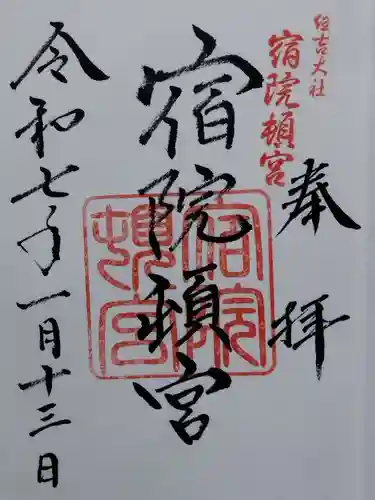 住吉大社
宿院頓宮
奉拝
宿院頓宮
宿院頓宮
令和七年一月十三日